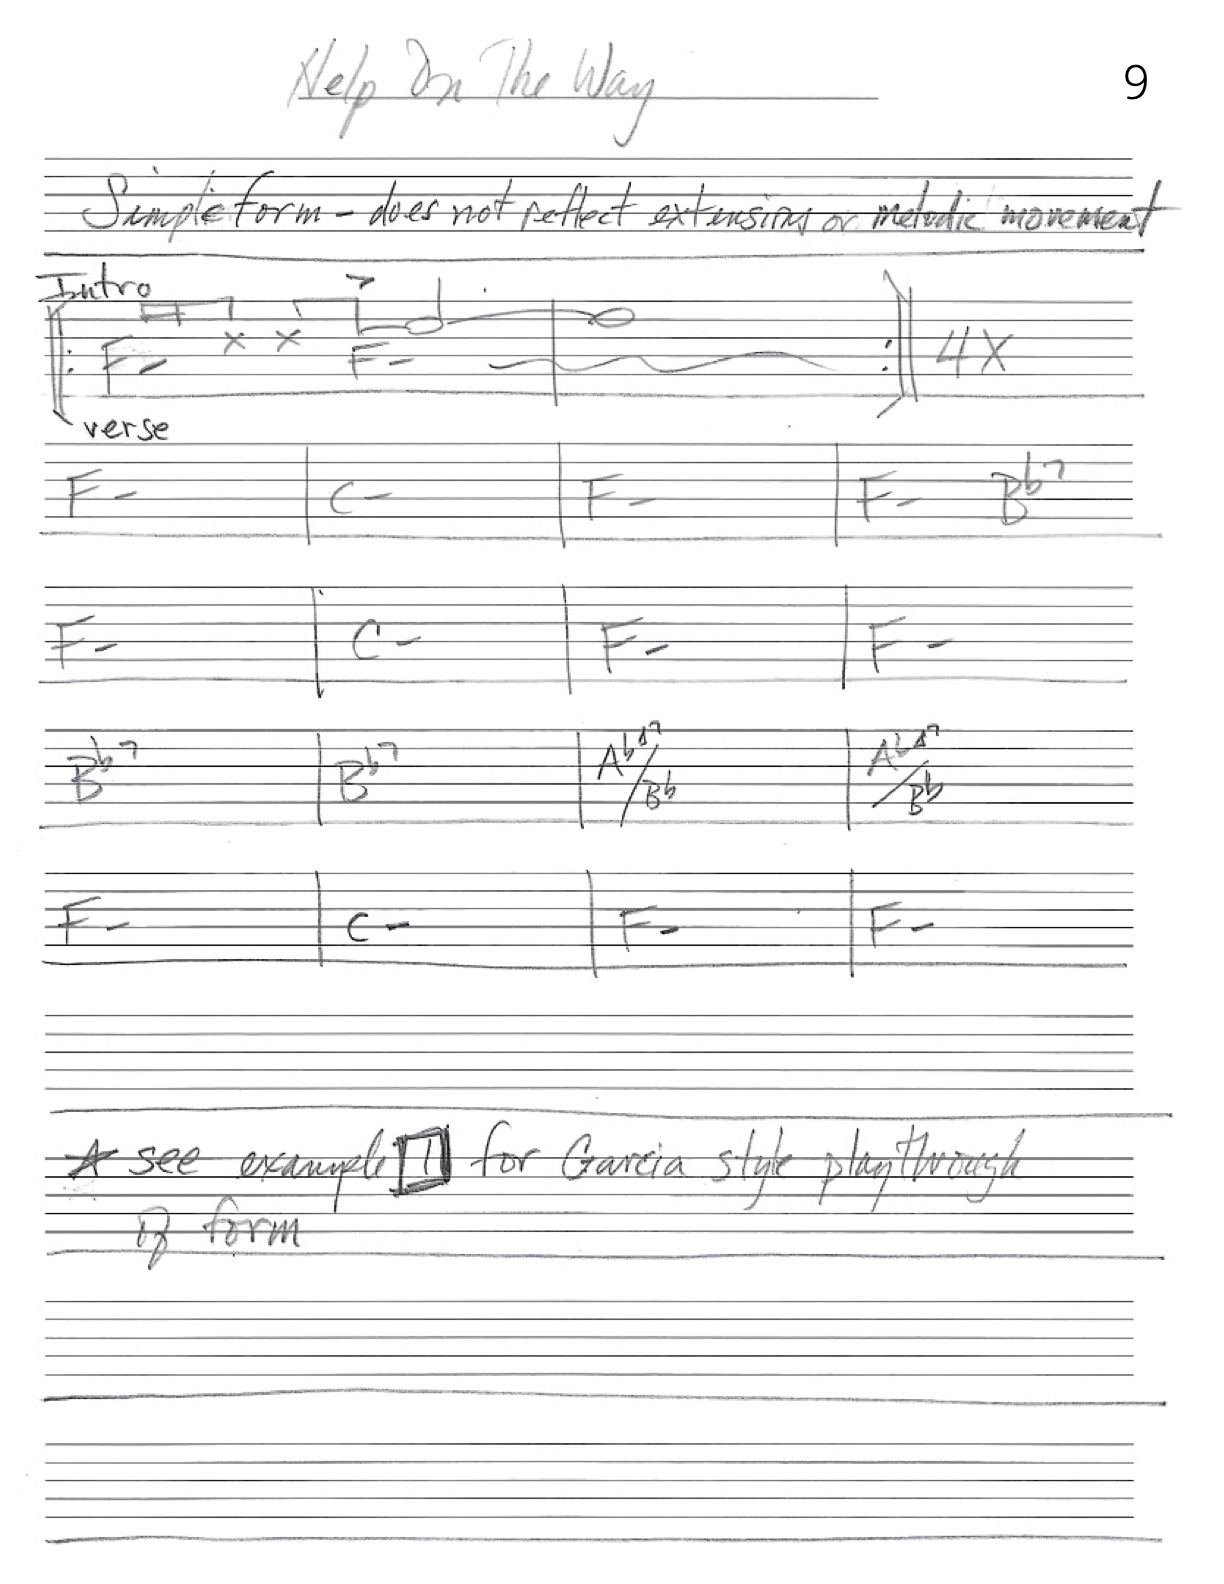 Help On The Way
9
Simple form - does not reflect extensions or melodic movement
Intro
F- x x F- 4X
verse
F- C- F- F- Bb7
F- C- F- F-
Bb7 Bb7 Ab△7/Bb Ab△7/Bb
F- C- F- F-
★ see example 1 for Garcia style playthrough
of form